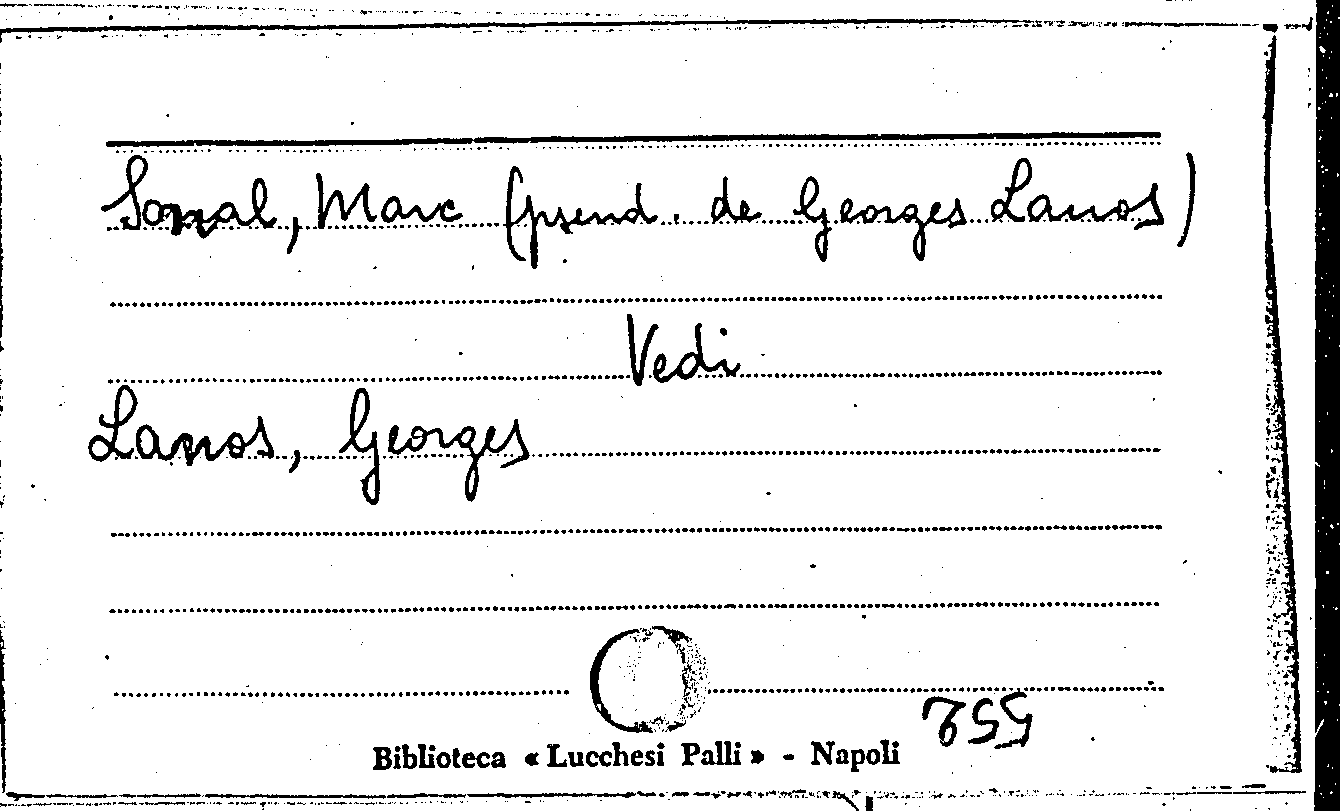 Sonal, Marc (pseud. de Georges Lanos)
Vedi
Lanos, Georges
Biblioteca « Lucchesi Palli » - Napoli